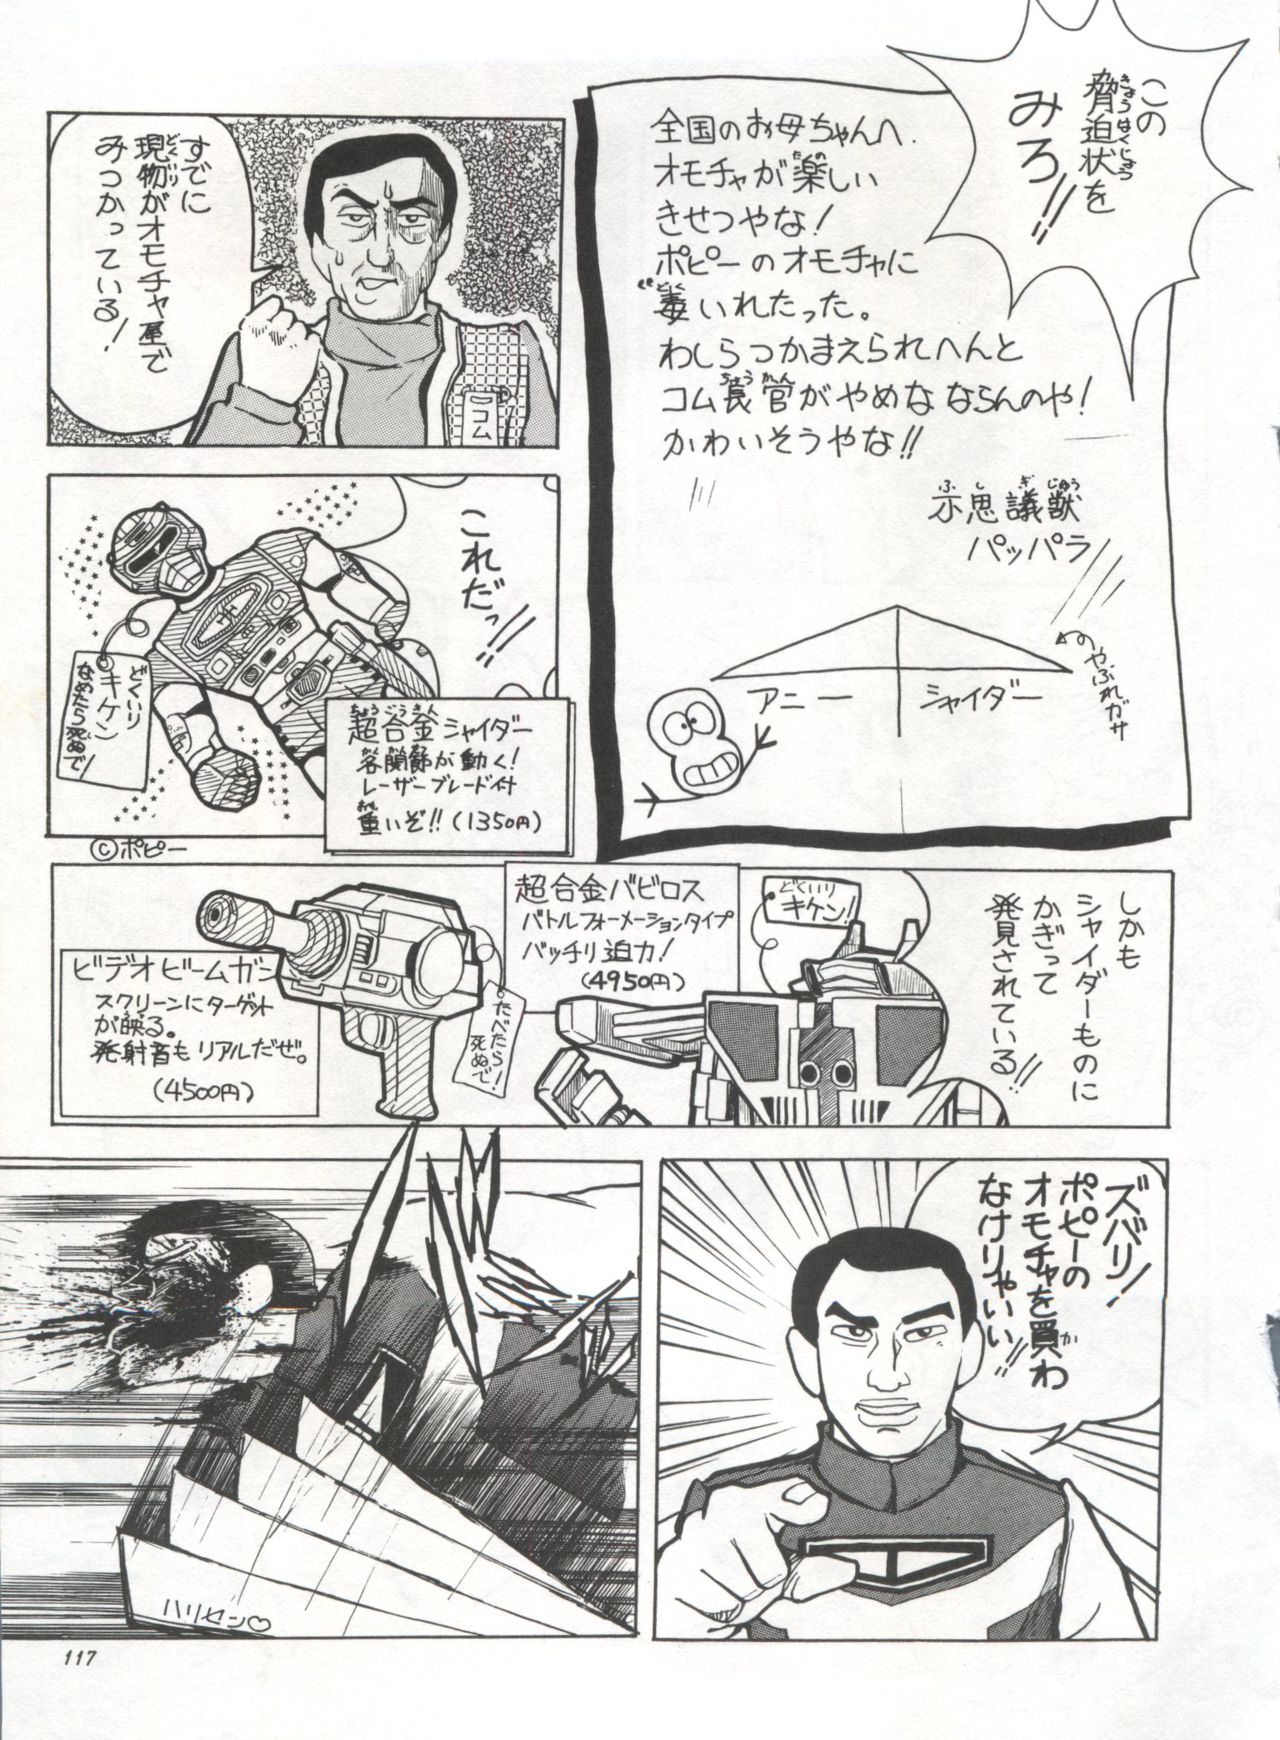 この
脅迫状を
きょうはくじょう
みろ!!
全国のお母ちゃんへ.
オモチャが楽しい
たの
きせつやな!
ポピーのオモチャに
毒いれたった。
どく
わしらつかまえられへんと
コム長官がやめなならんのや!
ちょうかん
かわいそうやな!!
不思議獣
ふしぎじゅう
パッパラ
アニー
シャイダー
やぶれガサ
すでに
現物がオモチャ屋で
みつかっている!
コム
これだっ!!
どくいり
キケン
なめたら死ぬで!
超合金シャイダー
ちょうごうきん
各関節が動く!
レーザーブレード付
重いぞ!!(1350円)
おも
©ポピー
しかも
シャイダーものに
かぎって
発見されている!!
どくいり
キケン!
超合金バビロス
バトルフォーメーションタイプ
バッチリ迫力!
(4950円)
たべたら
死ぬで!
ビデオビームガン
スクリーンにターゲット
が映る。
発射音もリアルだぜ。
(4500円)
ズバリ!
ポピーの
オモチャを買わ
か
なけりゃいい!!
ハリセン♡
117